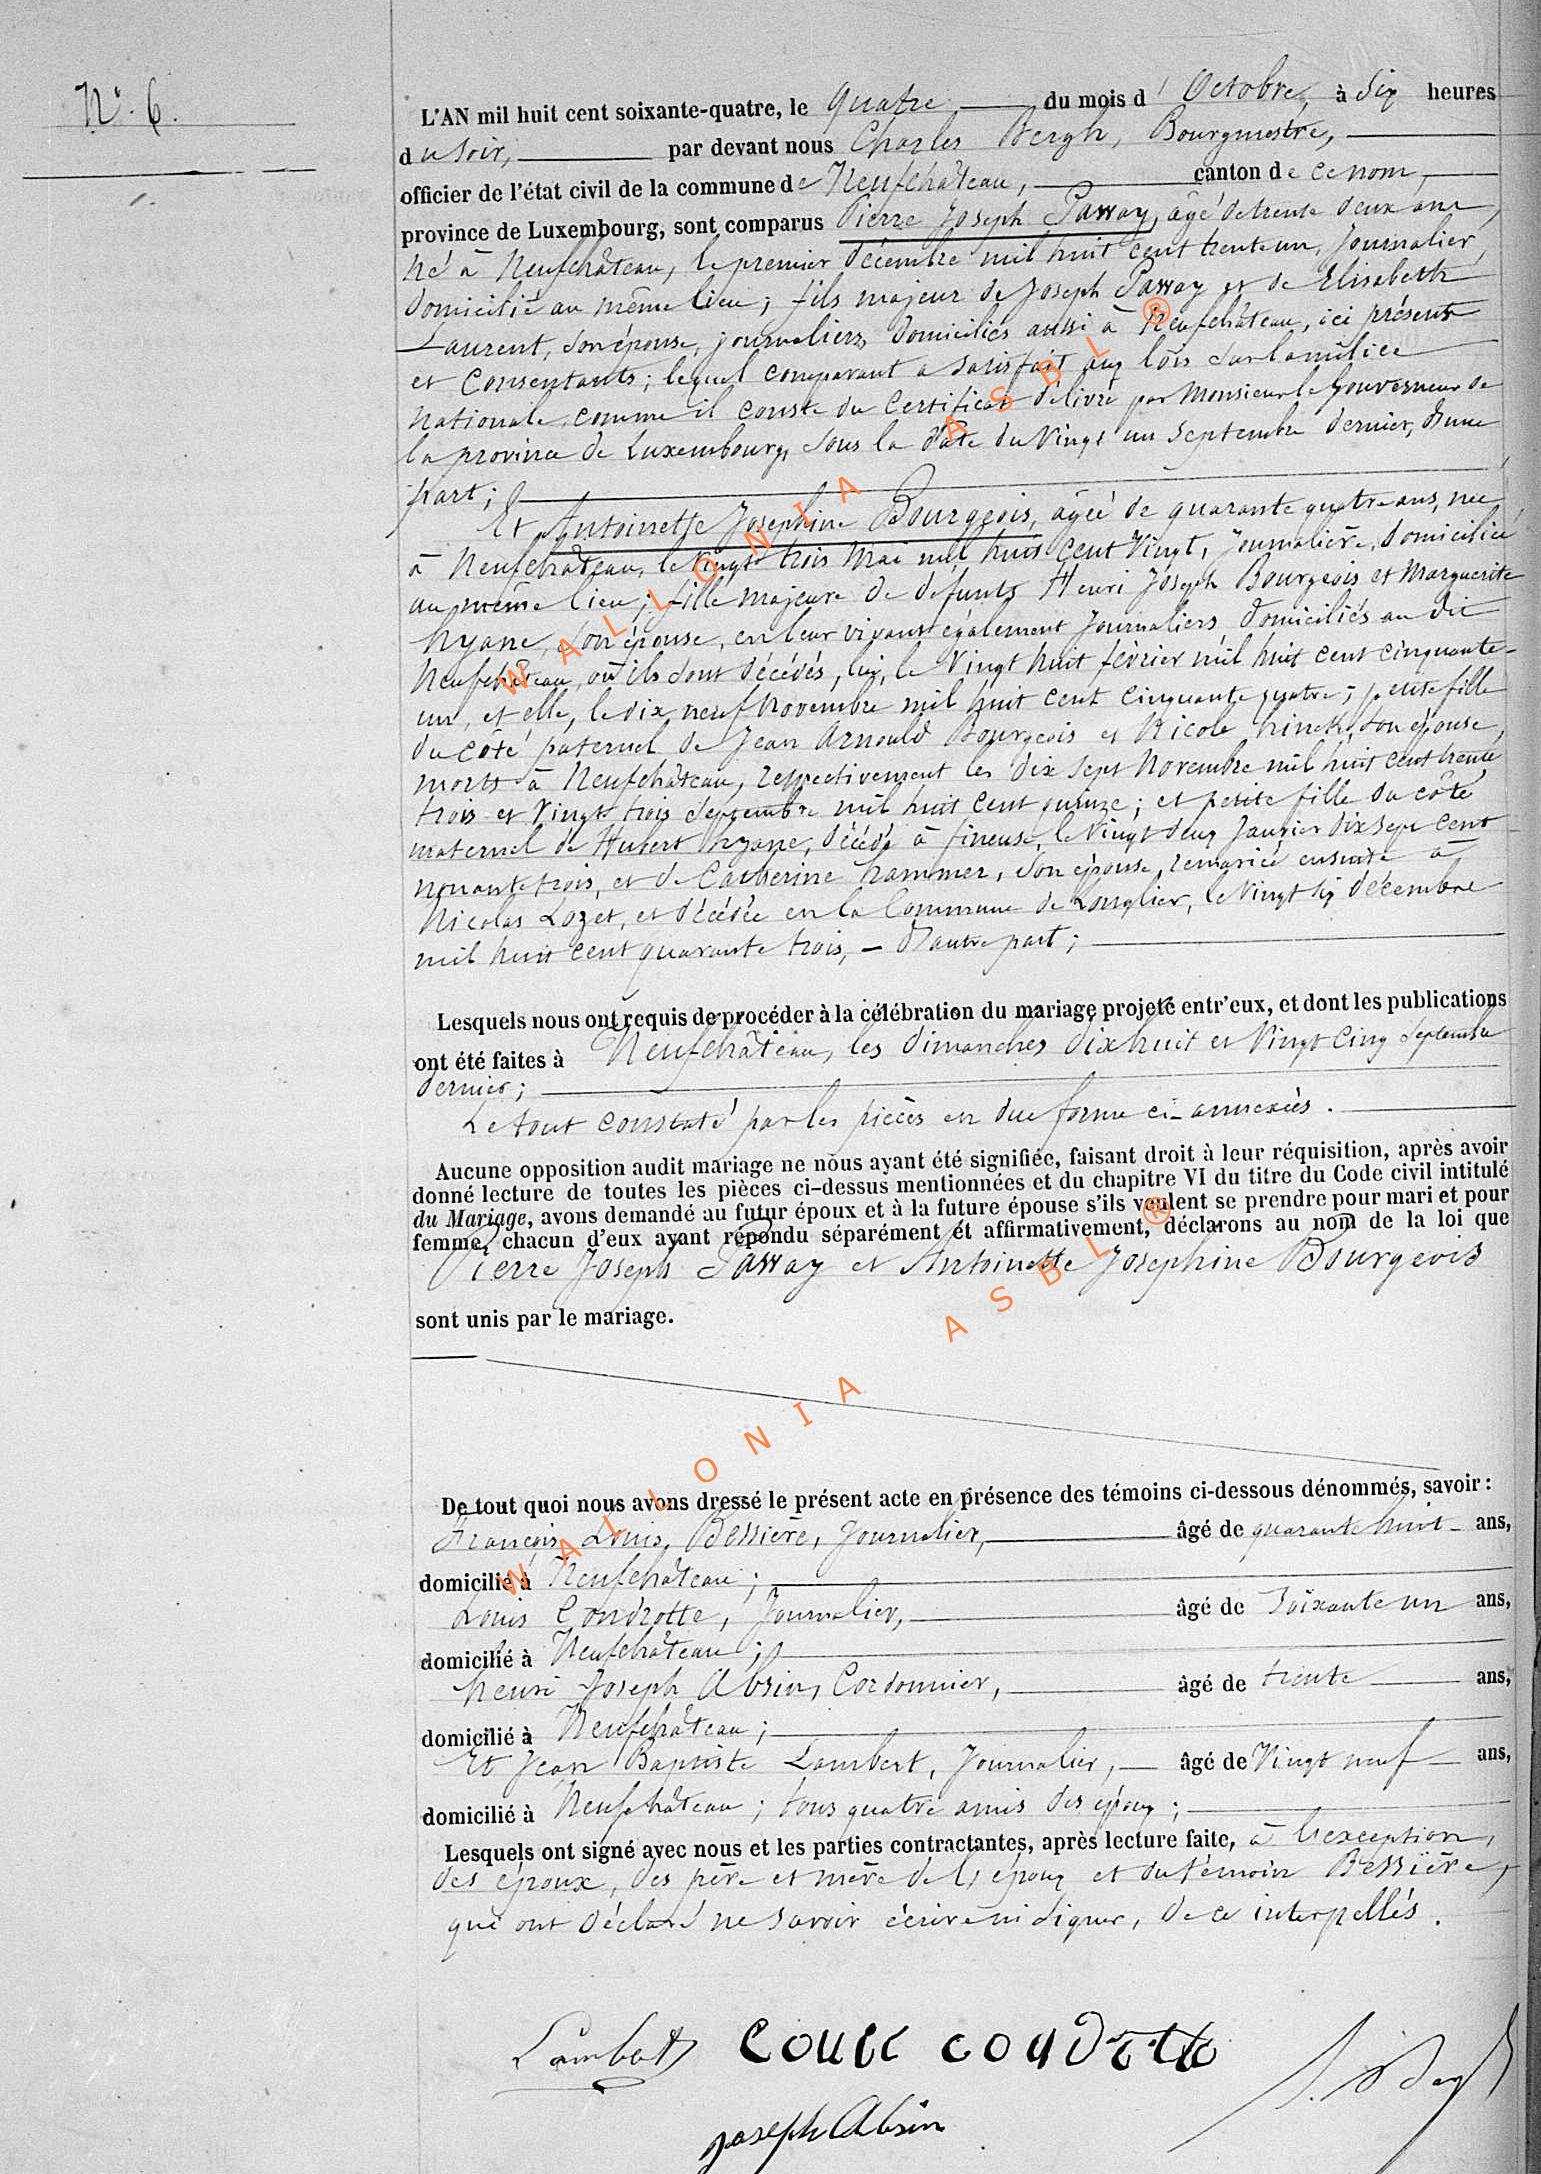 N°. 6.
L'AN mil huit cent soixante-quatre, le quatre du mois d'Octobre, à dix heures
du soir, par devant nous Charles Bergh, Bourgmestre,
officier de l'état civil de la commune de Neufchâteau, canton de ce nom,
province de Luxembourg, sont comparus Pierre Joseph Passay, âgé de trente deux ans,
né à Neufchâteau, le premier décembre mil huit cent trente un, Journalier,
domicilié au même lieu; fils majeur de Joseph Passay et de Elisabeth
Laurent, son épouse, journaliers, domiciliés aussi à Neufchâteau, ici présents
et consentants; lequel comparant a satisfait aux lois sur la milice
nationale, comme il conste du Certificat délivré par Monsieur le Gouverneur de
la province de Luxembourg, sous la date du Vingt un Septembre dernier, d'une
part;
Et Antoinette Josephine Bourgeois, âgée de quarante quatre ans, née
à Neufchâteau, le Vingt trois Mai mil huit cent Vingt, Journalière, domiciliée
au même lieu; fille majeure de defunts Henri Joseph Bourgeois et Marguerite
hyane, son épouse, en leur vivant également Journaliers domiciliés au dit
Neufchâteau, où ils sont décédés, lui, le Vingt huit février mil huit cent cinquante-
un, et elle, le dix neuf Novembre mil huit cent cinquante quatre; petite fille
du côté paternel de Jean Arnould Bourgeois et Nicole hinck, son épouse,
morts à Neufchâteau, respectivement les dix sept Novembre mil huit cent trente
trois et Vingt trois septembre mil huit cent quinze; et petite fille du côté
maternel de Hubert hyane, décédé à fineuse, le Vingt deux Janvier dix sept cent
nonante trois, et de Catherine hammer, son épouse, remariée ensuite à
Nicolas Lozet, et décédée en la Commune de Longlier, le Vingt six décembre
mil huit cent quarante trois, - D'autre part;
Lesquels nous ont requis de procéder à la célébration du mariage projeté entr'eux, et dont les publications
ont été faites à Neufchâteau, les dimanches dix huit et Vingt Cinq Septembre
dernier;
Le tout constaté par les pièces en due forme ci-annexées.
Aucune opposition audit mariage ne nous ayant été signifiée, faisant droit à leur réquisition, après avoir
donné lecture de toutes les pièces ci-dessus mentionnées et du chapitre VI du titre du Code civil intitulé
du Mariage, avons demandé au futur époux et à la future épouse s'ils veulent se prendre pour mari et pour
femme, chacun d'eux ayant répondu séparément et affirmativement, déclarons au nom de la loi que
Pierre Joseph Passay et Antoinette Josephine Bourgeois
sont unis par le mariage.
De tout quoi nous avons dressé le présent acte en présence des témoins ci-dessous dénommés, savoir:
François Louis Bessière, Journalier, âgé de quarante huit ans,
domicilié à Neufchâteau;
Louis Condrotte, Journalier, âgé de Soixante un ans,
domicilié à Neufchâteau;
henri Joseph Absin, Cordonnier, âgé de trente ans,
domicilié à Neufchâteau;
Et Jean Baptiste Lambert, Journalier, âgé de Vingt neuf ans,
domicilié à Neufchâteau; tous quatre amis des époux;
Lesquels ont signé avec nous et les parties contractantes, après lecture faite, à l'exception,
des époux, des père et mère de l'époux et du témoin Bessière,
qui ont déclaré ne savoir écrire ni signer, de ce interpellés.
Lambert Louis Condrotte
Joseph Absin
WALLONIA ASBL ®
WALLONIA ASBL ®